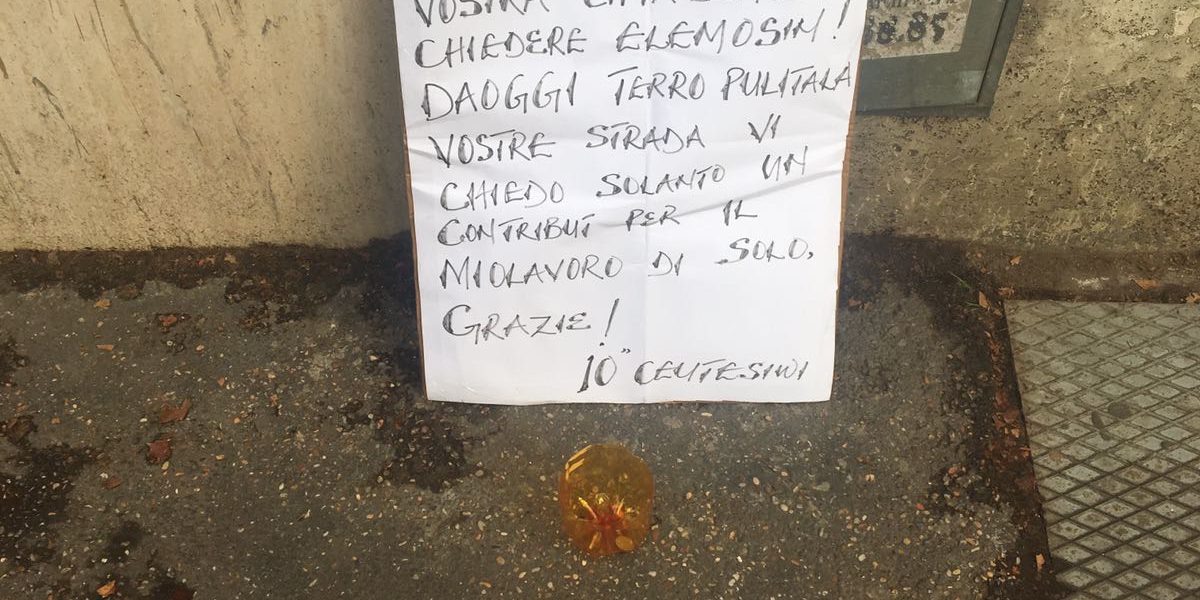 VOSTRA
CHIEDERE ELEMOSIN!
DAOGGI TERRO PULITALA
VOSTRE STRADA VI
CHIEDO SOLANTO UN
CONTRIBUT PER IL
MIOLAVORO DI SOLO.
GRAZIE!
10" CENTESIMI